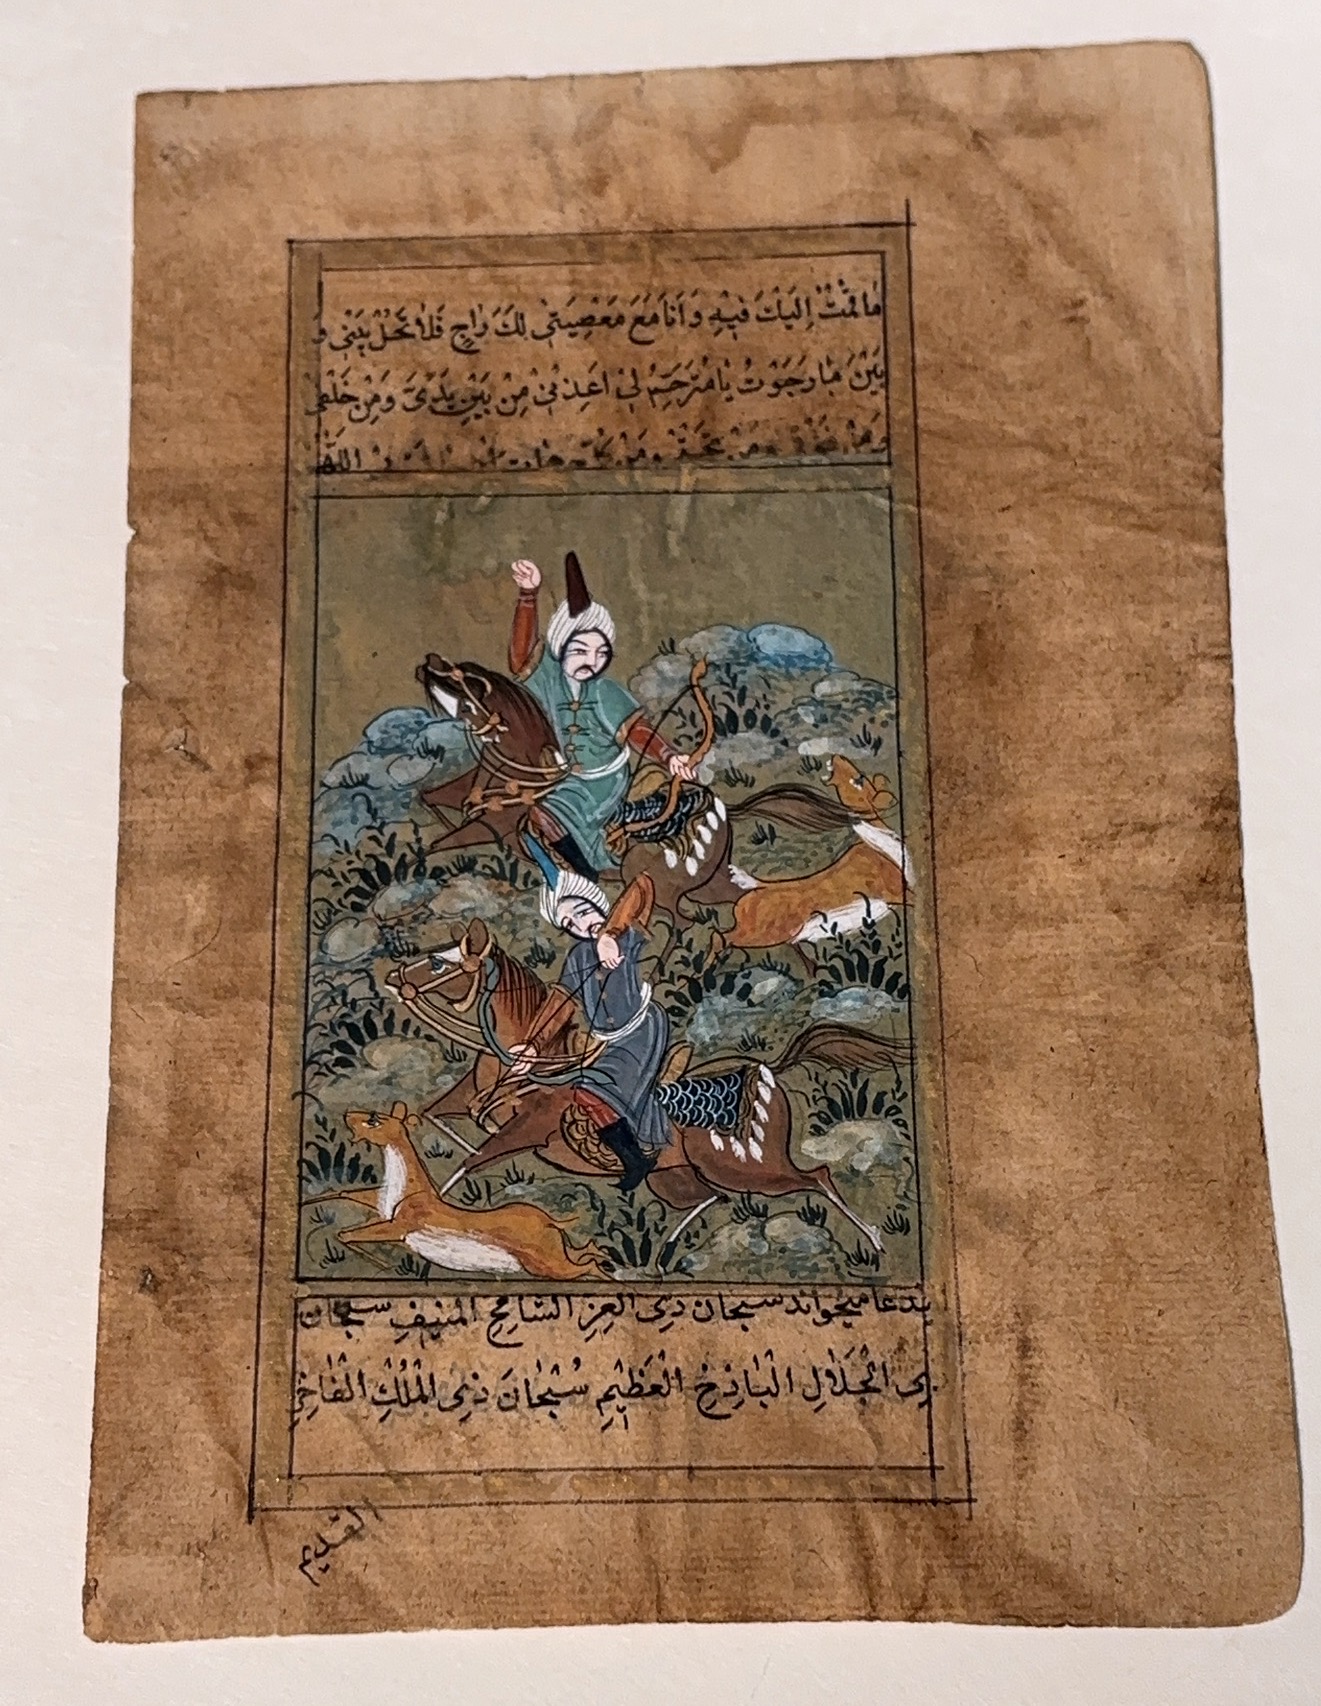 مَا لَمْتُ إِلَيْكَ فِيهِ وَأَنَا مَعَ مَعْصِيَتِي لَكَ رَاجٍ فَلَا تَحُلْ بَيْنِي وَ
بَيْنَ مَا رَجَوْتُ يَا مُتَرَحِّمُ لِي أَعِذْنِي مِنْ بَيْنِ يَدَيَّ وَمِنْ خَلْفِي
وَمِنْ وَمِنْ
بدعا میخواند سبحان ذِی العِزِ الشامِخِ المُنیفِ سبحان
ذِی الْجَلَالِ الْبَاذِخِ الْعَظِيمِ سُبْحَانَ ذِی الْمُلْكِ الْفَاخِرِ
القدیم